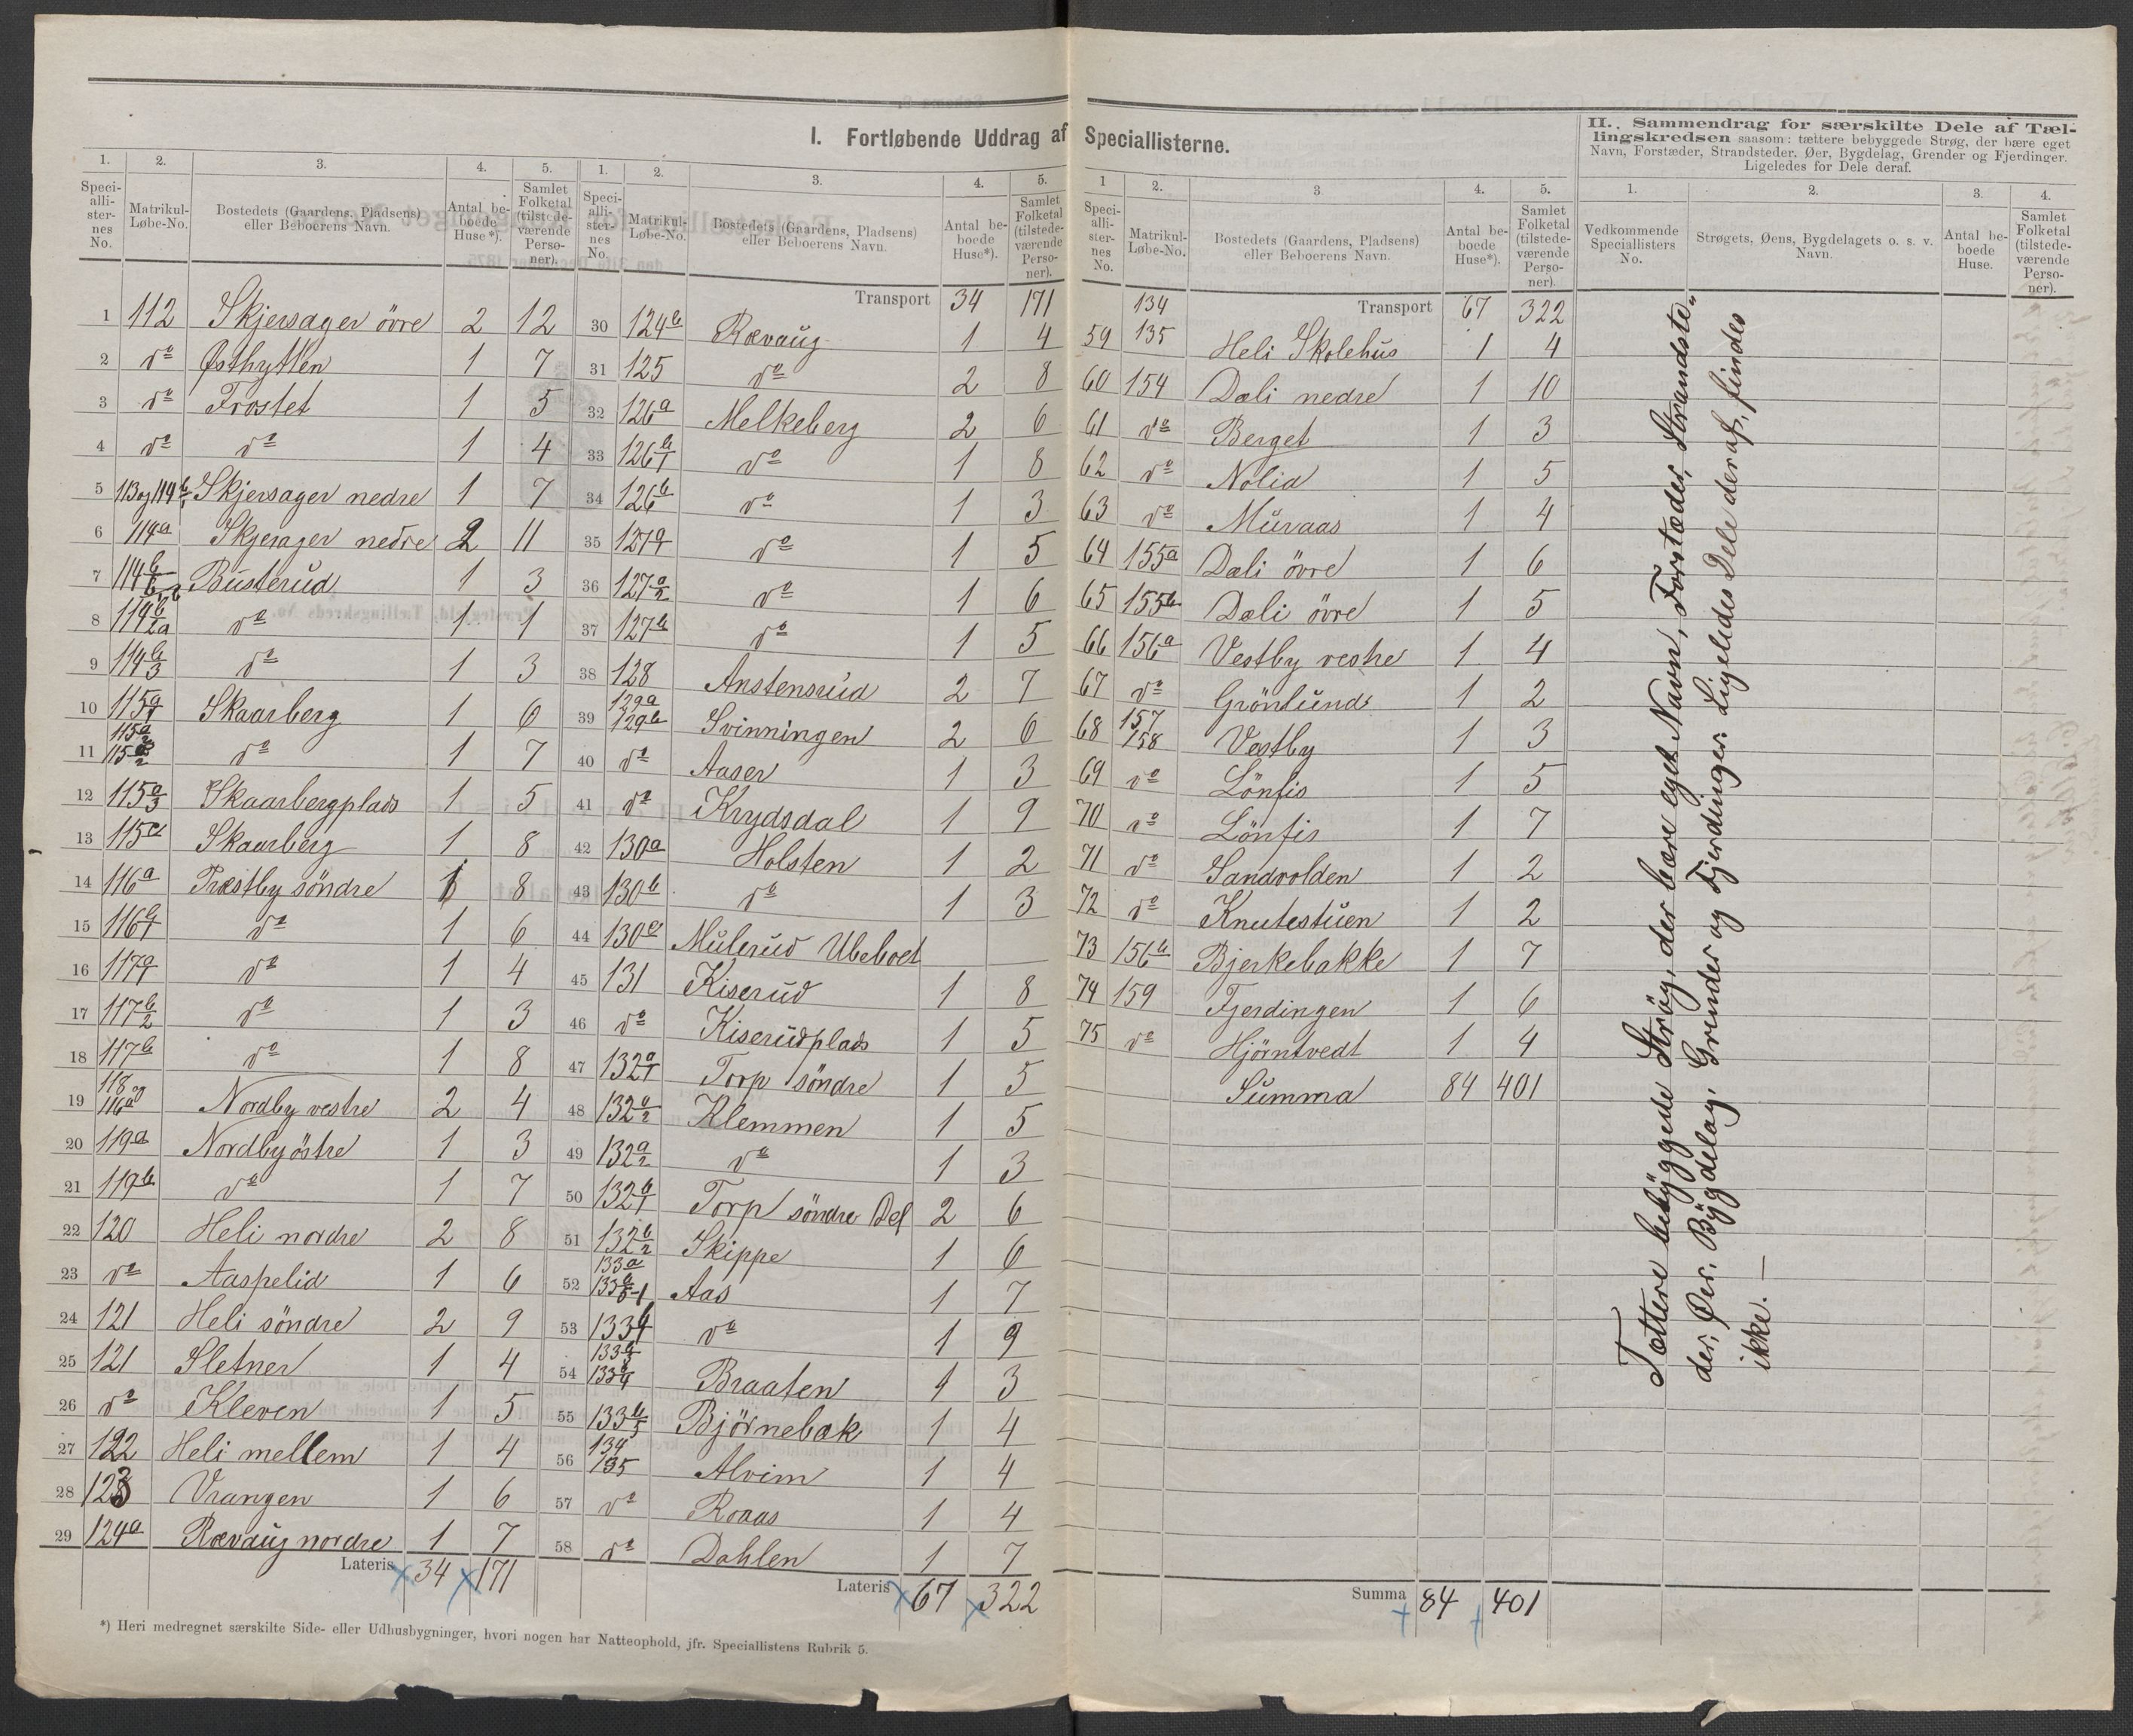 I. Fortløbende Uddrag af Speciallisterne.
1. 2. 3. 4. 5.
Speciallisternes No. Matrikul-Løbe-No. Bostedets (Gaardens, Pladsens) eller Beboerens Navn. Antal beboede Huse*). Samlet Folketal (tilstedeværende Personer).
1 112 Skjersager övre 2 12
2 do Østhytten 1 7
3 do Frostet 1 5
4 do do 1 4
5 113 og 114b Skjersager nedre 1 7
6 114a Skjersager nedre 2 11
7 114b Busterud 1 3
8 114b 2a do 1 1
9 114b 3 do 1 3
10 115a 1 Skaarberg 1 6
11 115a 2 do 1 7
12 115a 3 Skaarbergplads 1 5
13 115 Skaarberg 1 8
14 116a Træstby söndre 1 8
15 116b 1 do 1 6
16 117a 1 do 1 4
17 117b 2 do 1 3
18 117b do 1 8
19 118 og 116a Nordby vestre 2 4
20 119a Nordby östre 1 3
21 119b do 1 7
22 120 Heli nordre 2 8
23 do Aaspelid 1 6
24 121 Heli söndre 2 9
25 121 Sletner 1 4
26 do Kleven 1 5
27 122 Heli mellem 1 4
28 123 Vrangen 1 6
29 124a Rævaug nordre 1 7
Lateris 34 171
1. 2. 3. 4. 5.
Speciallisternes No. Matrikul-Løbe-No. Bostedets (Gaardens, Pladsens) eller Beboerens Navn. Antal beboede Huse*). Samlet Folketal (tilstedeværende Personer).
Transport 34 171
30 124b Rævaug 1 4
31 125 do 2 8
32 126a Melkeberg 2 6
33 126b 1 do 1 8
34 126b do 1 3
35 127a 1 do 1 5
36 127a 2 do 1 6
37 127b do 1 5
38 128 Anstensrud 2 7
39 129a 129b Svinningen 2 6
40 do Aaser 1 3
41 do Krydsdal 1 9
42 130a Holsten 1 2
43 130b do 1 3
44 130c Mulerud Ubeboet
45 131 Kiserud 1 8
46 do Kiserudplads 1 5
47 132a 1 Torp söndre 1 5
48 132a 2 Klemmen 1 5
49 132a 2 do 1 3
50 132b 1 Torp söndre Del 2 6
51 132b 2 Skippe 1 6
52 133a Aas 1 7
53 133b do 1 9
54 133b Braaten 1 3
55 133b 5 Björnebæk 1 4
56 134 135 Alvim 1 4
57 do Roaas 1 4
58 do Dahlen 1 7
Lateris 67 322
*) Heri medregnet særskilte Side- eller Udhusbygninger, hvori nogen har Natteophold, jfr. Speciallistens Rubrik 5.
1 2. 3 4. 5.
Speciallisternes No. Matrikul-Løbe-No. Bostedets (Gaardens, Pladsens) eller Beboerens Navn. Antal beboede Huse*). Samlet Folketal (tilstedeværende Personer).
Transport 67 322
59 134 135 Heli Skolehus 1 4
60 154 Dæli nedre 1 10
61 do Berget 1 3
62 do Nolia 1 5
63 do Muraas 1 4
64 155a Dæli övre 1 6
65 155b Dæli övre 1 5
66 156a Vestby vestre 1 4
67 do Grönlund 1 2
68 157 158 Vestby 1 3
69 do Lönfis 1 5
70 do Lönfis 1 7
71 do Sandvolden 1 2
72 do Knutestuen 1 2
73 156b Bjerkebakke 1 7
74 159 Fjerdingen 1 6
75 do Hjörntvedt 1 4
Summa 84 401
Summa 84 401
II. Sammendrag for særskilte Dele af Tæl-
lingskredsen saasom: tættere bebyggede Strøg, der bære eget
Navn, Forstæder, Strandsteder, Øer, Bygdelag, Grender og Fjerdinger.
Ligeledes for Dele deraf.
1. 2. 3. 4.
Vedkommende Speciallisters No. Strøgets, Øens, Bygdelagets o. s. v. Navn. Antal beboede Huse. Samlet Folketal (tilstedeværende Personer).
Tættere bebyggede Strøg, der bære eget Navn, Forstæder, Strandste-
der, Øer, Bygdelag, Grender og Fjerdinger. Ligeledes Dele deraf, findes
ikke. —